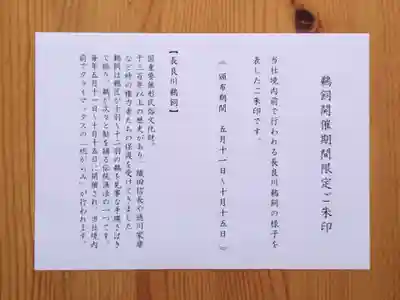 鵜飼開催期間限定ご朱印
当社境内前で行われる長良川鵜飼の様子を
表したご朱印です。
《 頒布期間 五月十一日~十月十五日 》
【長良川鵜飼】
国重要無形民俗文化財。
千三百年以上の歴史があり、織田信長や徳川家康
など時の権力者たちの保護を受けてきました。
鵜飼は鵜匠が十羽~十二羽の鵜を見事な手縄さばき
で操り、鵜が次々と鮎を捕る伝統漁法の一つです。
毎年五月十一日~十月十五日に開催され、当社境内
前でクライマックスの「総がらみ」が行われます。